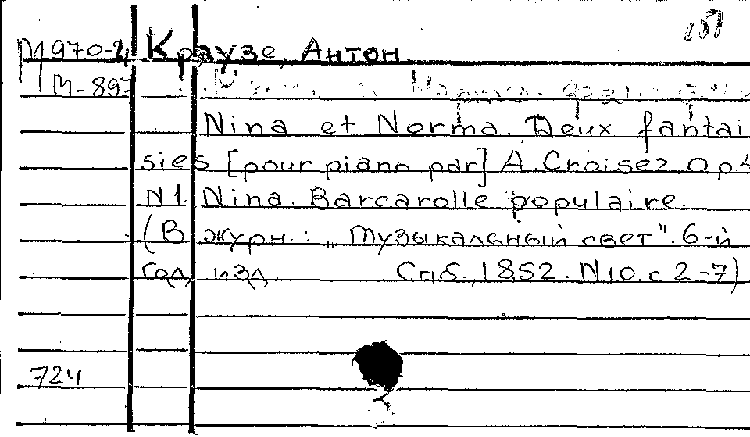 157
М970-4 Краузе, Антон
М-897
Nina et Norma. Deux fantai
sies [pour piano par] A. Croisez Op
N1. Nina. Barcarolle populaire.
(В журн.: „Музыкальный свет". 6-й
год изд. Спб., 1852. N10. с 2-7)
724